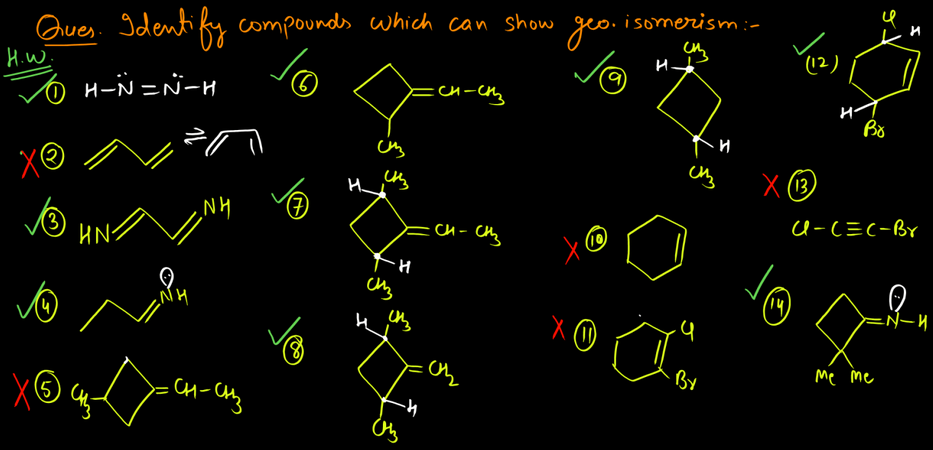 Ques. Identify compounds which can show geo. isomerism:-
H.W.
① H-N̈=N̈-H
②
③ HN NH
④ NH
⑤ CH3 =CH-CH3
⑥ =CH-CH3
CH3
⑦ H CH3
=CH-CH3
H
CH3
⑧ H CH3
=CH2
H
CH3
⑨ CH3
H
H
CH3
⑩
⑪ Cl
Br
(12) Cl
H
H
Br
⑬
Cl-C≡C-Br
⑭ =N-H
Me Me